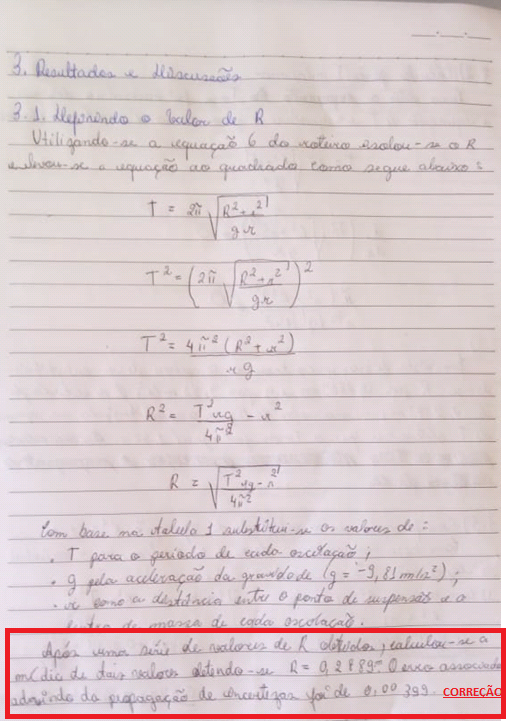 3. Resultados e Discussões
3.1. Definindo o valor de R
Utilizando-se a equação 6 do roteiro isolou-se o R
e elevou-se a equação ao quadrado como segue abaixo:
T = 2π √((R²+r²)/(gr))
T² = (2π √((R²+r²)/(gr)))²
T² = 4π²(R²+r²)/(rg)
R² = T²rg/4π² - r²
R = √(T²rg/4π² - r²)
Com base na tabela 1 substitui-se os valores de:
• T para o período de cada oscilação;
• g pela aceleração da gravidade (g = -9,81 m/s²);
• r como a distância entre o ponto de suspensão e o
centro de massa de cada oscilação.
Após uma série de valores de R obtidos, calculou-se a
média de tais valores obtendo-se R = 0,2789 O erro associado
advindo da propagação de incertezas foi de 0,00399. CORREÇÃO